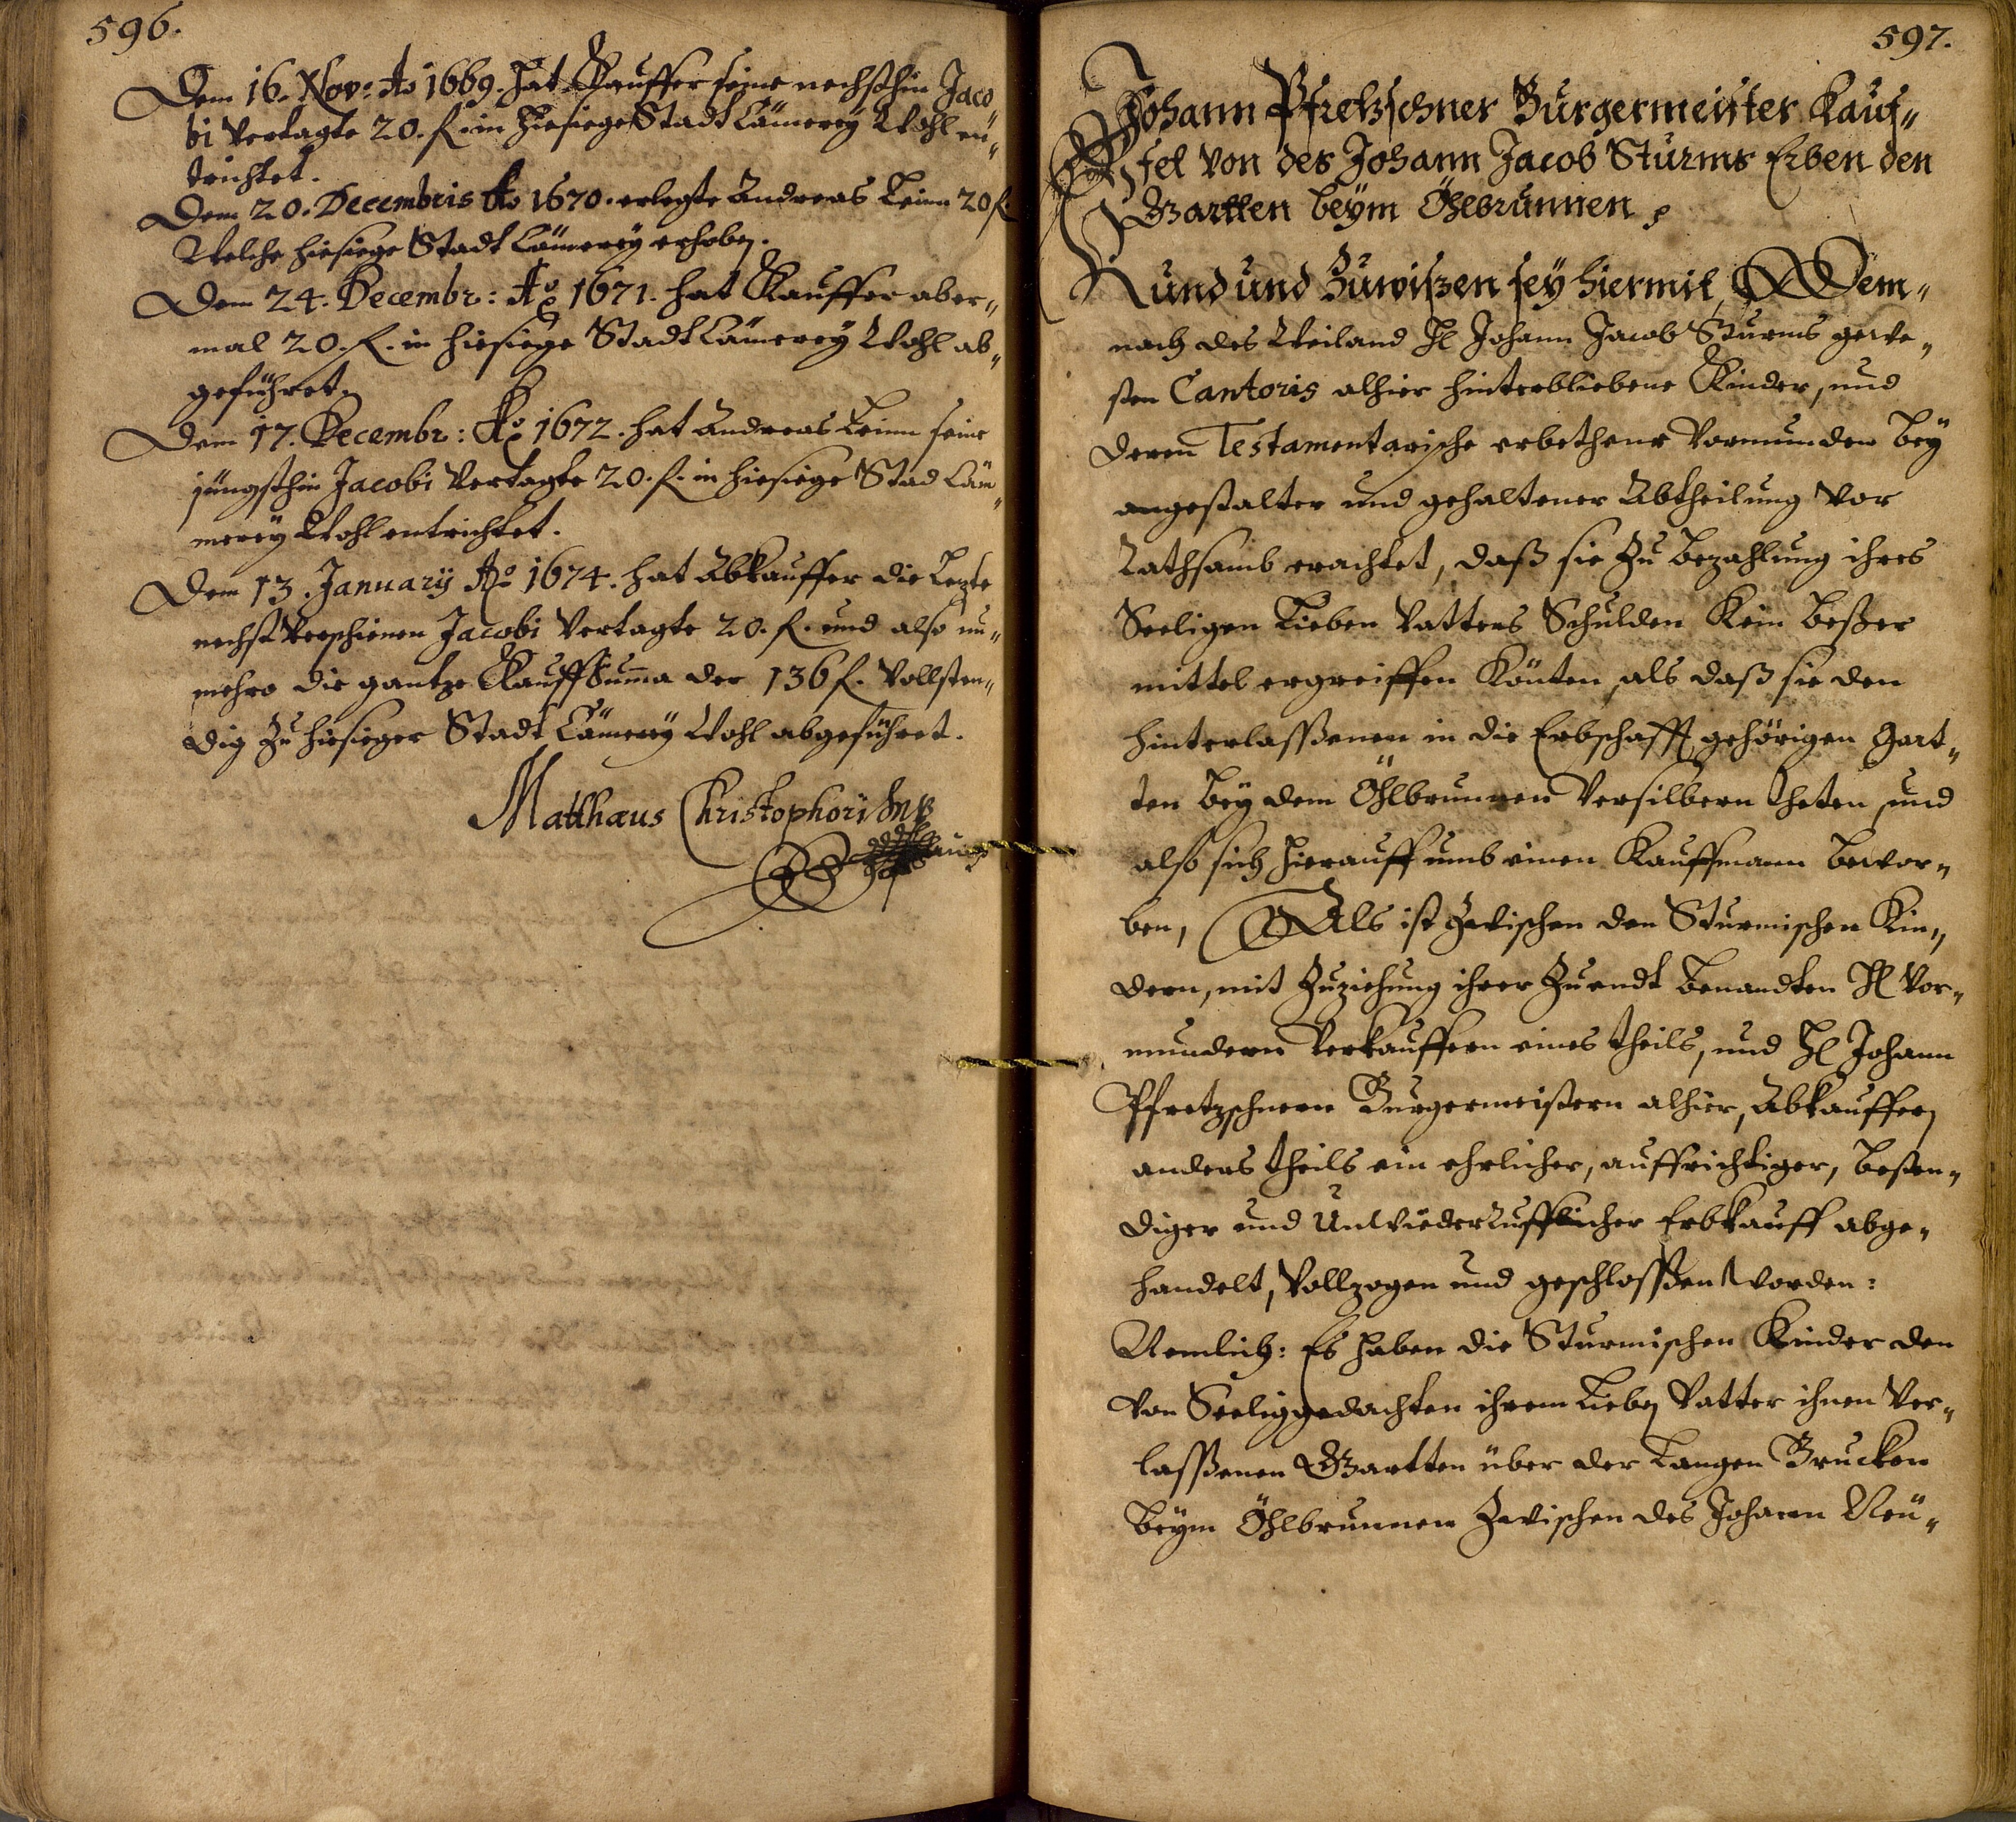 596.
Dem 16. Nov: Ao 1669. hat Kauffer seine nechsthin Jaco„
bi vertagte 20. f. in hiesiege Stadt Cämerey Wohl en„
trichtet.
Dem 20. Decembris Ao 1670. erlegte Andreas Leinn 20 f.
Welche hiesiege Stadt Cämerey erhoben.
Dem 24. Decembr: Ao 1671. hat Kauffer aber„
mal 20. f. in hiesiege Stadt Cämerey Wohl ab„
geführet.
Dem 17. Decembr: Ao 1672. hat Andreas Leinn seine
jüngsthin Jacobi Vertagte 20. f. in hiesiege Stad Cäm„
merey Wohl entrichtet.
Dem 13. Januarÿ Ao 1674. hat Abkauffer die Lezte
nechst Verschienen Jacobi Vertagte 20. f. und also nu„
mehro die gantze Kauff Suma der 136 f. Vollsten„
dig zu hiesieger Stadt Cämerey Wohl abgeführet.
Matthæus Christophori
597.
Johann Pfretzschner Burgermeister Kauf„
fet von des Johann Jacob Sturms Erben den
Gartten beÿm Öhlbrunnen
Kund und Zuwißen seÿ hiermit, Dem„
nach des Weiland Hl Johann Jacob Sturms gewe„
sen Cantoris alhier hinterbliebene Kinder, und
deren Testamentarische erbethene Vormunden beÿ
angestalter und gehaltener Abtheilung vor
Rathsamb erachtet, daß sie Zu bezahlung ihres
Seeligen Lieben Vatters Schulden Kein beßer
mittel ergreiffen Könten, als daß sie den
hinterlaßenen in die Erbschafft gehörigen Gart„
ten beÿ dem Öhlbrunnen Versilbern theten, und
also sich hierauff umb einen Kauffmann bewor„
ben, Als ist Zwischen den Sturmischen Kin„
dern, mit Zuziehung ihrer Zu endt benandten Hl Vor„
mundern Verkauffern eines theils, und Hl Johann
Pfretzschnern Burgermeistern alhier, Abkauffern
anders theils ein ehrlicher, auffrichtiger, besten„
diger und Unwiederrufflicher Erbkauff abge„
handelt, Vollzogen und geschloßen Worden:
Nemlich: Es haben die Sturmischen Kinder den
von Seeliggedachten ihrem Lieben Vatter ihnen Ver„
laßenen Gartten über der Langen Brucken
beÿm Öhlbrunnen Zwischen des Johann Neu„